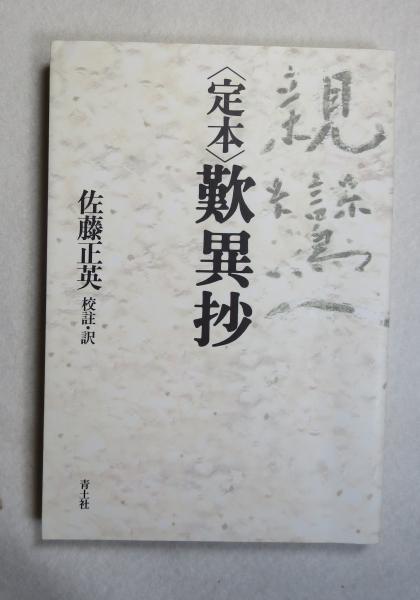 〈定本〉歎異抄
佐藤正英 校註・訳
青土社